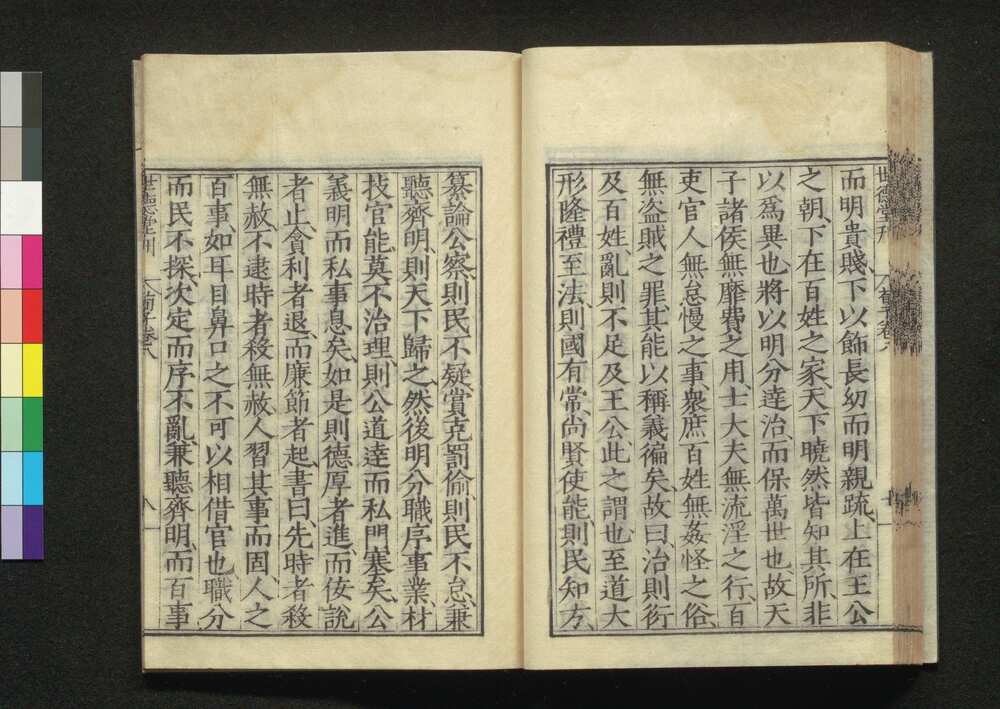 世德堂刊 荀子卷八
而明貴賤、下以飾長幼而明親疏、上在王公
之朝、下在百姓之家、天下曉然皆知其所、非
以爲異也、將以明分達治、而保萬世也、故天
子諸侯無靡費之用、士大夫無流淫之行、百
吏官人無怠慢之事、衆庶百姓無姦怪之俗、
無盜賊之罪、其能以稱義徧矣、故曰治則衍
及百姓、亂則不足及王公、此之謂也、至道大
形、隆禮至法、則國有常、尚賢使能、則民知方、
纂論公察、則民不疑、賞克罰偷、則民不怠、兼
聽齊明、則天下歸之、然後明分職序事業材
技官能、莫不治理、則公道達而私門塞矣、公
義明而私事息矣、如是則德厚者進、而佞說
者止、貪利者退、而廉節者起、書曰、先時者殺
無赦、不逮時者殺無赦、人習其事而固、人之
百事、如耳目鼻口之不可以相借官也、職分
而民不探、次定而序不亂、兼聽齊明、而百事
世德堂刊 荀子卷八 八